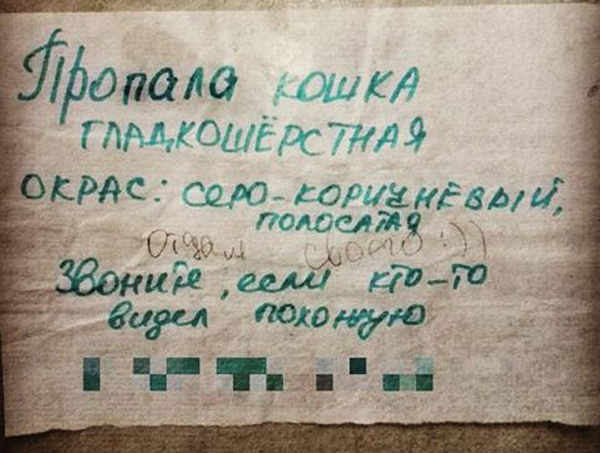 Пропала кошка
гладкошёрстная
окрас: серо-коричневый,
полосатая
отдам своего :))
Звоните, если кто-то
видел похожую